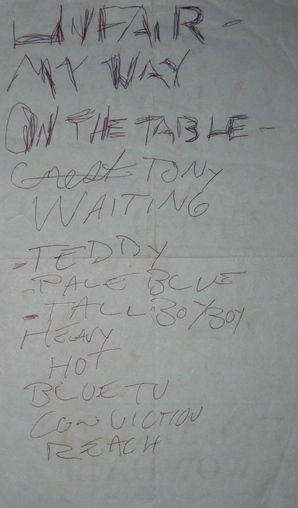 UNFAIR -
MY WAY
ON THE TABLE -
TONY
WAITING
- TEDDY
- PALE BLUE
- TALL BOY/BOY
HEAVY
HOT
BLUE TV
CONVICTION
REACH